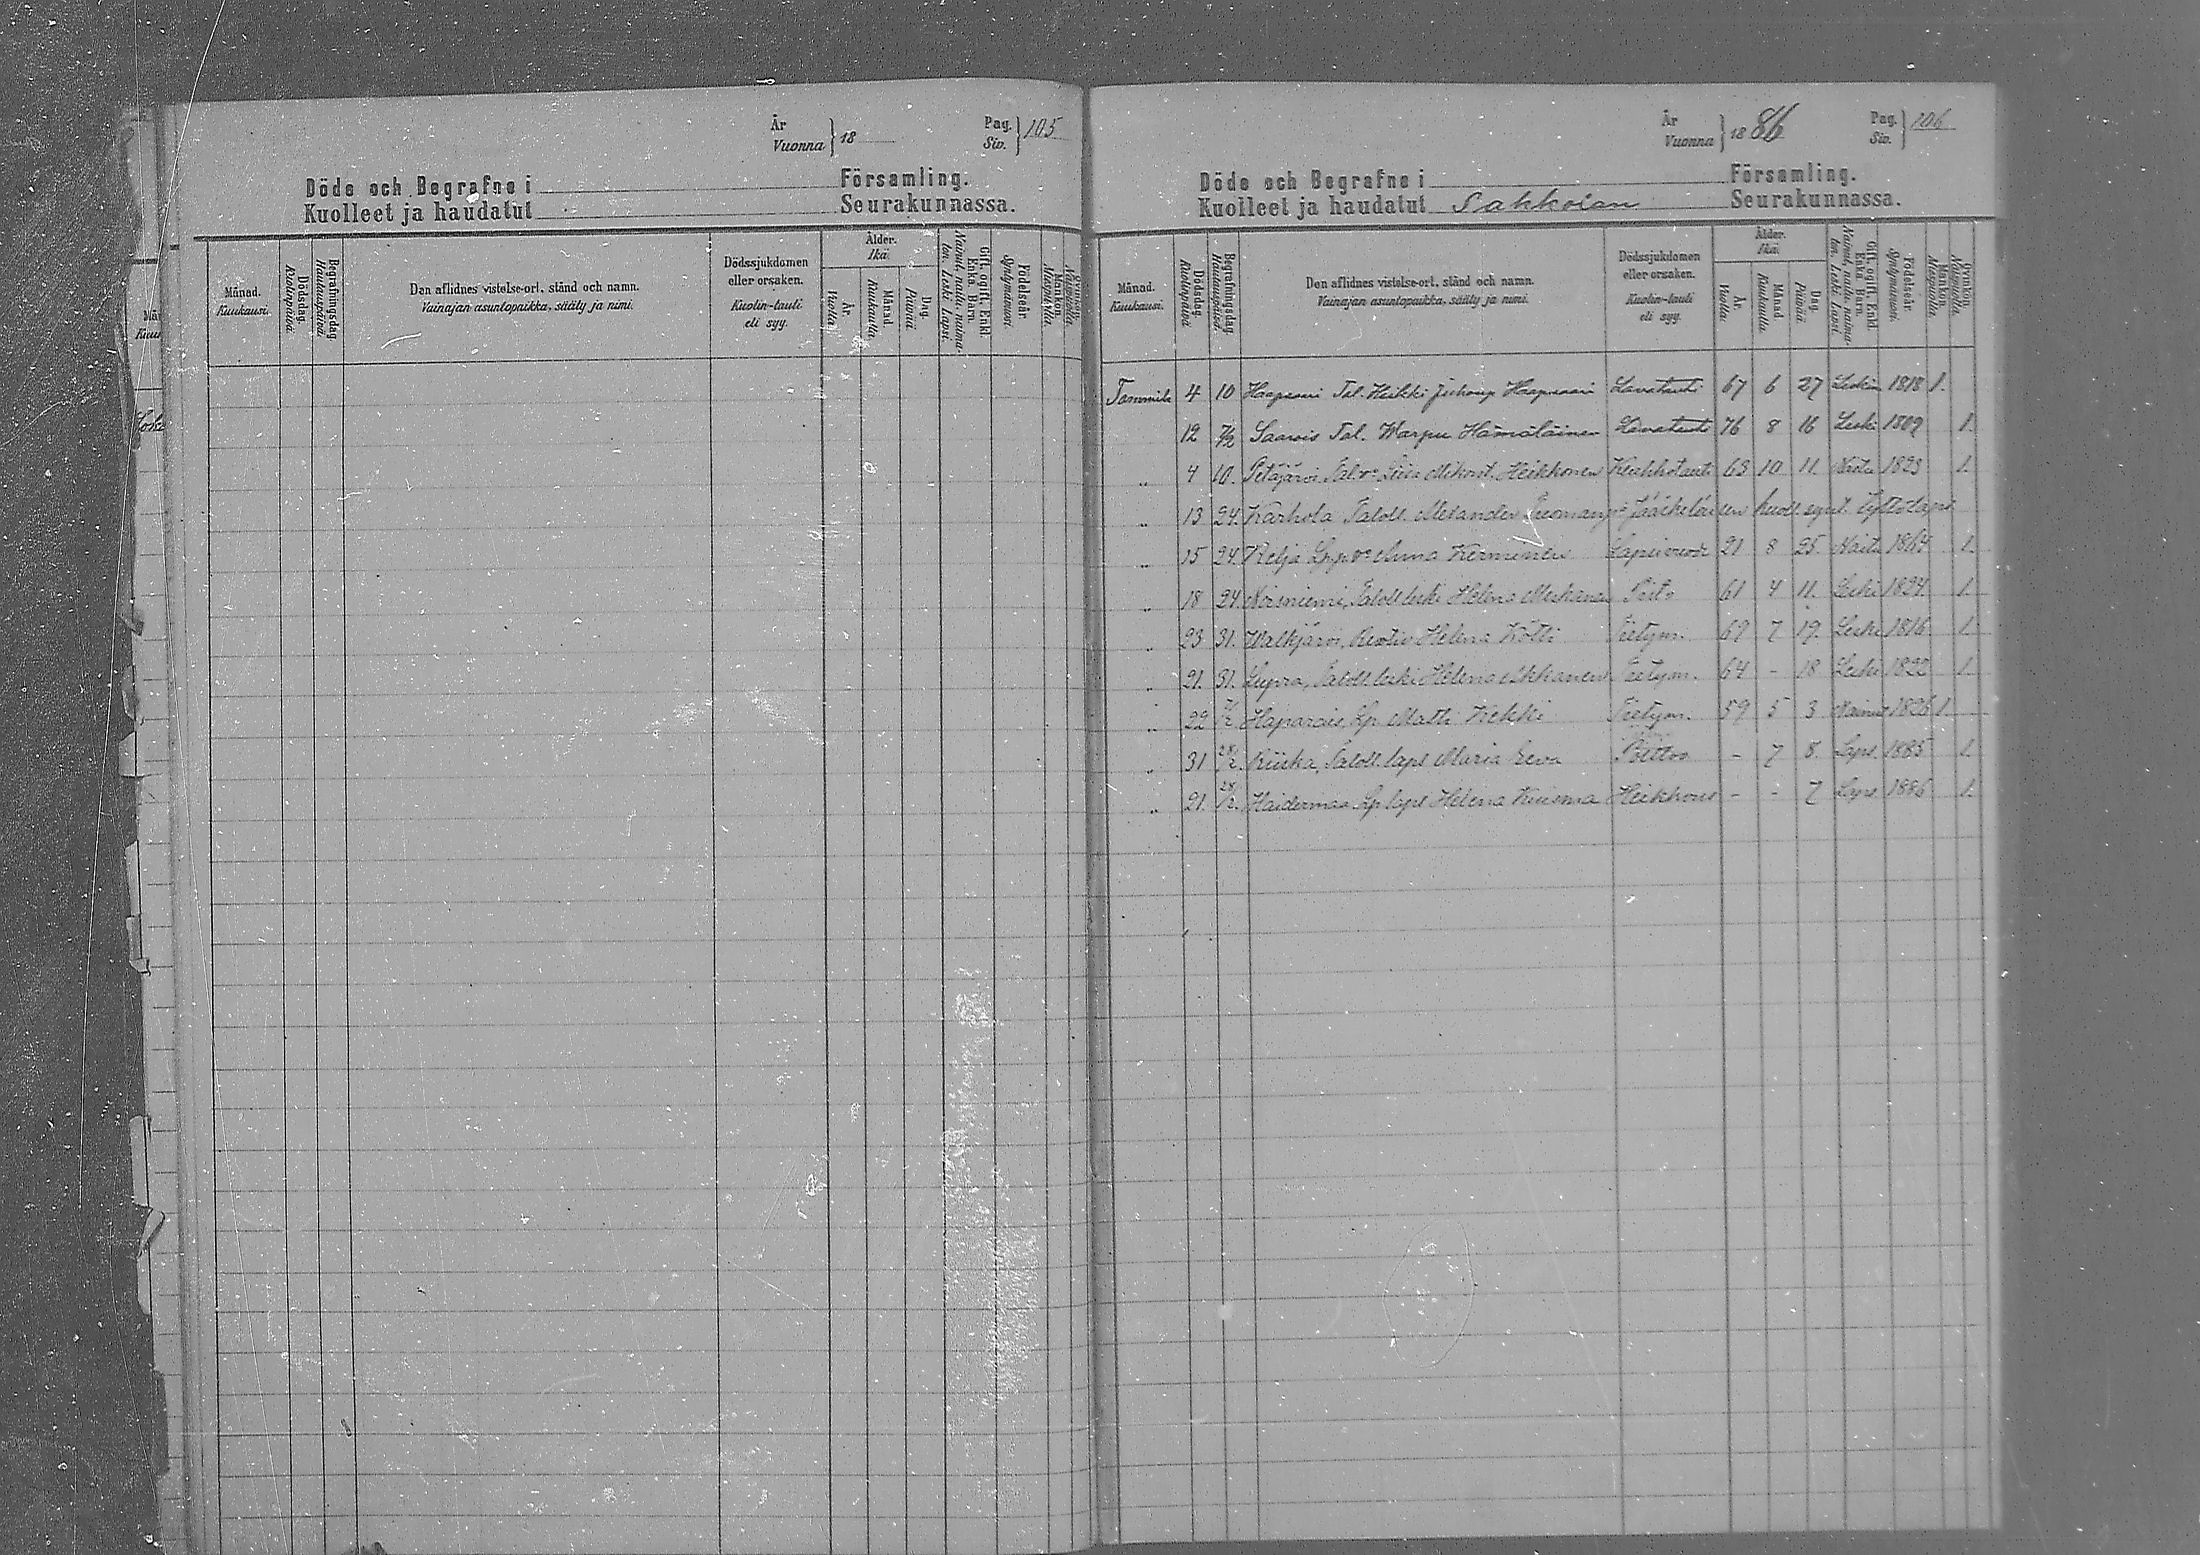 År
Vuonna } 18
Pag.
Siv. } 105
Döde och Begrafne i Församling.
Kuolleet ja haudatut Seurakunnassa.
Månad. Kuukausi.
Dödsdag. Kuolinpäivä
Begrafningsdag Hautauspäivä.
Den aflidnes vistelse-ort, stånd och namn.
Vainajan asuntopaikka, sääty ja nimi.
Dödssjukdomen eller orsaken.
Kuolin-tauti eli syy.
Ålder. Ikä.
År. Vuotta
Månad. Kuukautta
Dag. Päivää
Gift, ogift, Enkl. Enka. Barn.
Nainut, naitu, naimaton. Leski. Lapsi.
Födelseår. Syntymävuosi.
Mankön. Miespuolia
Qvinkön. Naispuolia.
År
Vuonna } 1886
Pag.
Siv. } 106
Döde och Begrafne i Församling.
Kuolleet ja haudatut Sakkolan Seurakunnassa.
Månad. Kuukausi.
Dödsdag. Kuolinpäivä
Begrafningsdag Hautauspäivä.
Den aflidnes vistelse-ort, stånd och namn.
Vainajan asuntopaikka, sääty ja nimi.
Dödssjukdomen eller orsaken.
Kuolin-tauti eli syy.
Ålder. Ikä.
År. Vuotta
Månad. Kuukautta
Dag. Päivää
Gift, ogift, Enkl. Enka. Barn.
Nainut, naitu, naimaton. Leski. Lapsi.
Födelseår. Syntymävuosi.
Mankön. Miespuolia
Qvinkön. Naispuolia.
Tammik 4 10 Haapsaari Tal. Heikki Juhonp. Haapsaari Lavatauti 67 6 27 Leskim 1818 1.
12 7/2 Saarois Tal. Warpu Hämäläinen Lavatauti 76 8 16 Leski 1809 1.
„ 4 10. Petäjärvi, Tal. v:o Liisa Mikont. Heikkonen Keuhkotauti 63 10 11. Naitu 1823 1.
„ 13 24. Karhola Taloll. Jääskeläisen kuoll. synt. tyttölapsi
„ 15 24. Kelja Lpp v:o Anna Kerminen Lapsivuode 21 8 25 Naitu 1864 1.
„ 18 24. Noisniemi, Taloll. leski Helena 61 4 11. Leski 1824 1.
„ 23 31. Walkjärvi, Helena Kötti Pistym. 69 7 19. Leski 1816 1.
„ 21. 31. Lupra, Taloll. leski Helena Ikkanen Pistym. 64 - 18 Leski 1822 1.
„ 22 7/2 Haparais, Lp. Matti Kekki Pistym. 59 5 3 Nainut 1826 1.
„ 31 28/2. Riiska, Taloll. laps Maria Eeva Polttoo - 7 8 Laps. 1885 1.
„ 21. 28/2. Haitermaa Lp. laps Helena Kuisma Heikkous - - 7 Laps. 1886 1.